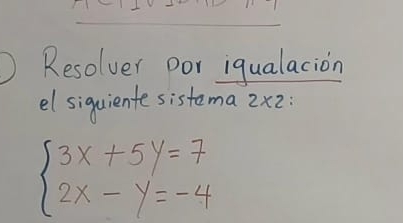 Resolver por igualación
el siguiente sistema 2x2:
3x + 5y = 7
2x - y = -4